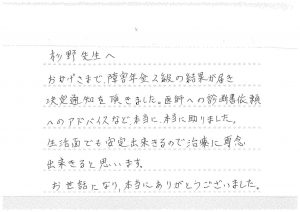 杉野先生へ
おかげさまで、障害年金2級の結果が届き
決定通知を頂きました。医師への診断書依頼
へのアドバイスなど、本当に、本当に助りました。
生活面でも安定出来るので治療に専念
出来ると思います。
お世話になり、本当にありがとうございました。